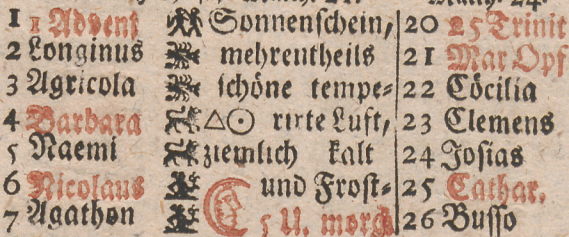 1 1 Advent Sonnenschein, 20 25 Trinit
2 Longinus mehrentheils 21 Mar Opf
3 Agricola schöne tempe- 22 Cöcilia
4 Barbara △☉ rirte Luft, 23 Clemens
5 Naemi ziemlich kalt 24 Josias
6 Nicolaus und Frost- 25 Cathar.
7 Agathon 5 U. morg 26 Busso